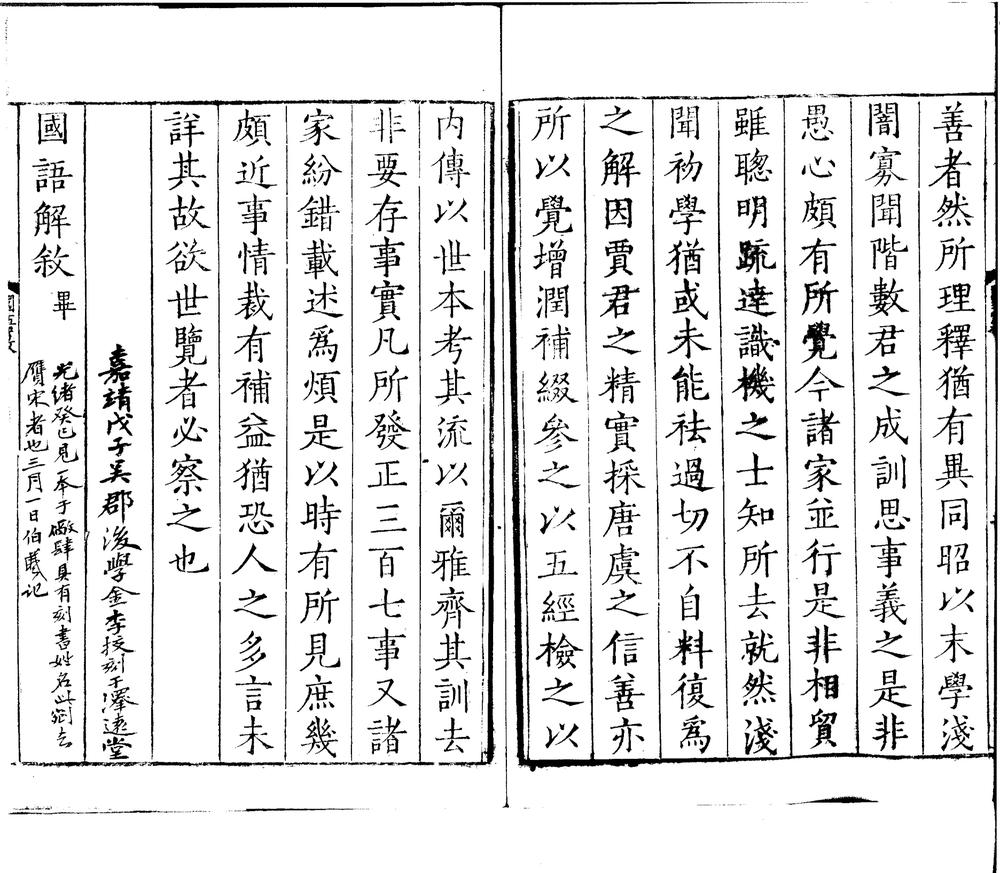 善者然所理釋猶有異同昭以末學淺
闇寡聞階數君之成訓思事義之是非
愚心頗有所覺今諸家並行是非相貿
雖聰明疏達識機之士知所去就然淺
聞初學猶或未能祛過切不自料復爲
之解因賈君之精實採唐虞之信善亦
所以覺增潤補綴參之以五經檢之以
内傳以世本考其流以爾雅齊其訓去
非要存事實凡所發正三百七事又諸
家紛錯載述爲煩是以時有所見庶幾
頗近事情裁有補益猶恐人之多言未
詳其故欲世覽者必察之也
嘉靖戊子吴郡後學金李校刻于澤遠堂
國語解敘 畢
光绪癸巳見一本于廠肆具有刻書姓名此
贋宋者也三月一日伯羲记